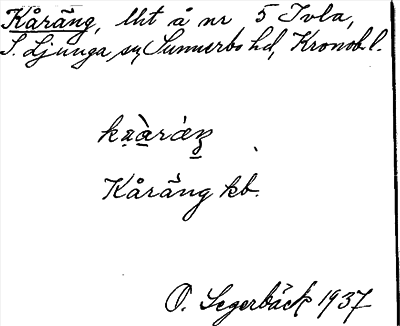 Kåräng, lht å nr 5 Tvla,
S. Ljunga sn, Sunnerbo hd, Kronob. l.
Kåräng kb.
O. Segerbäck 1937